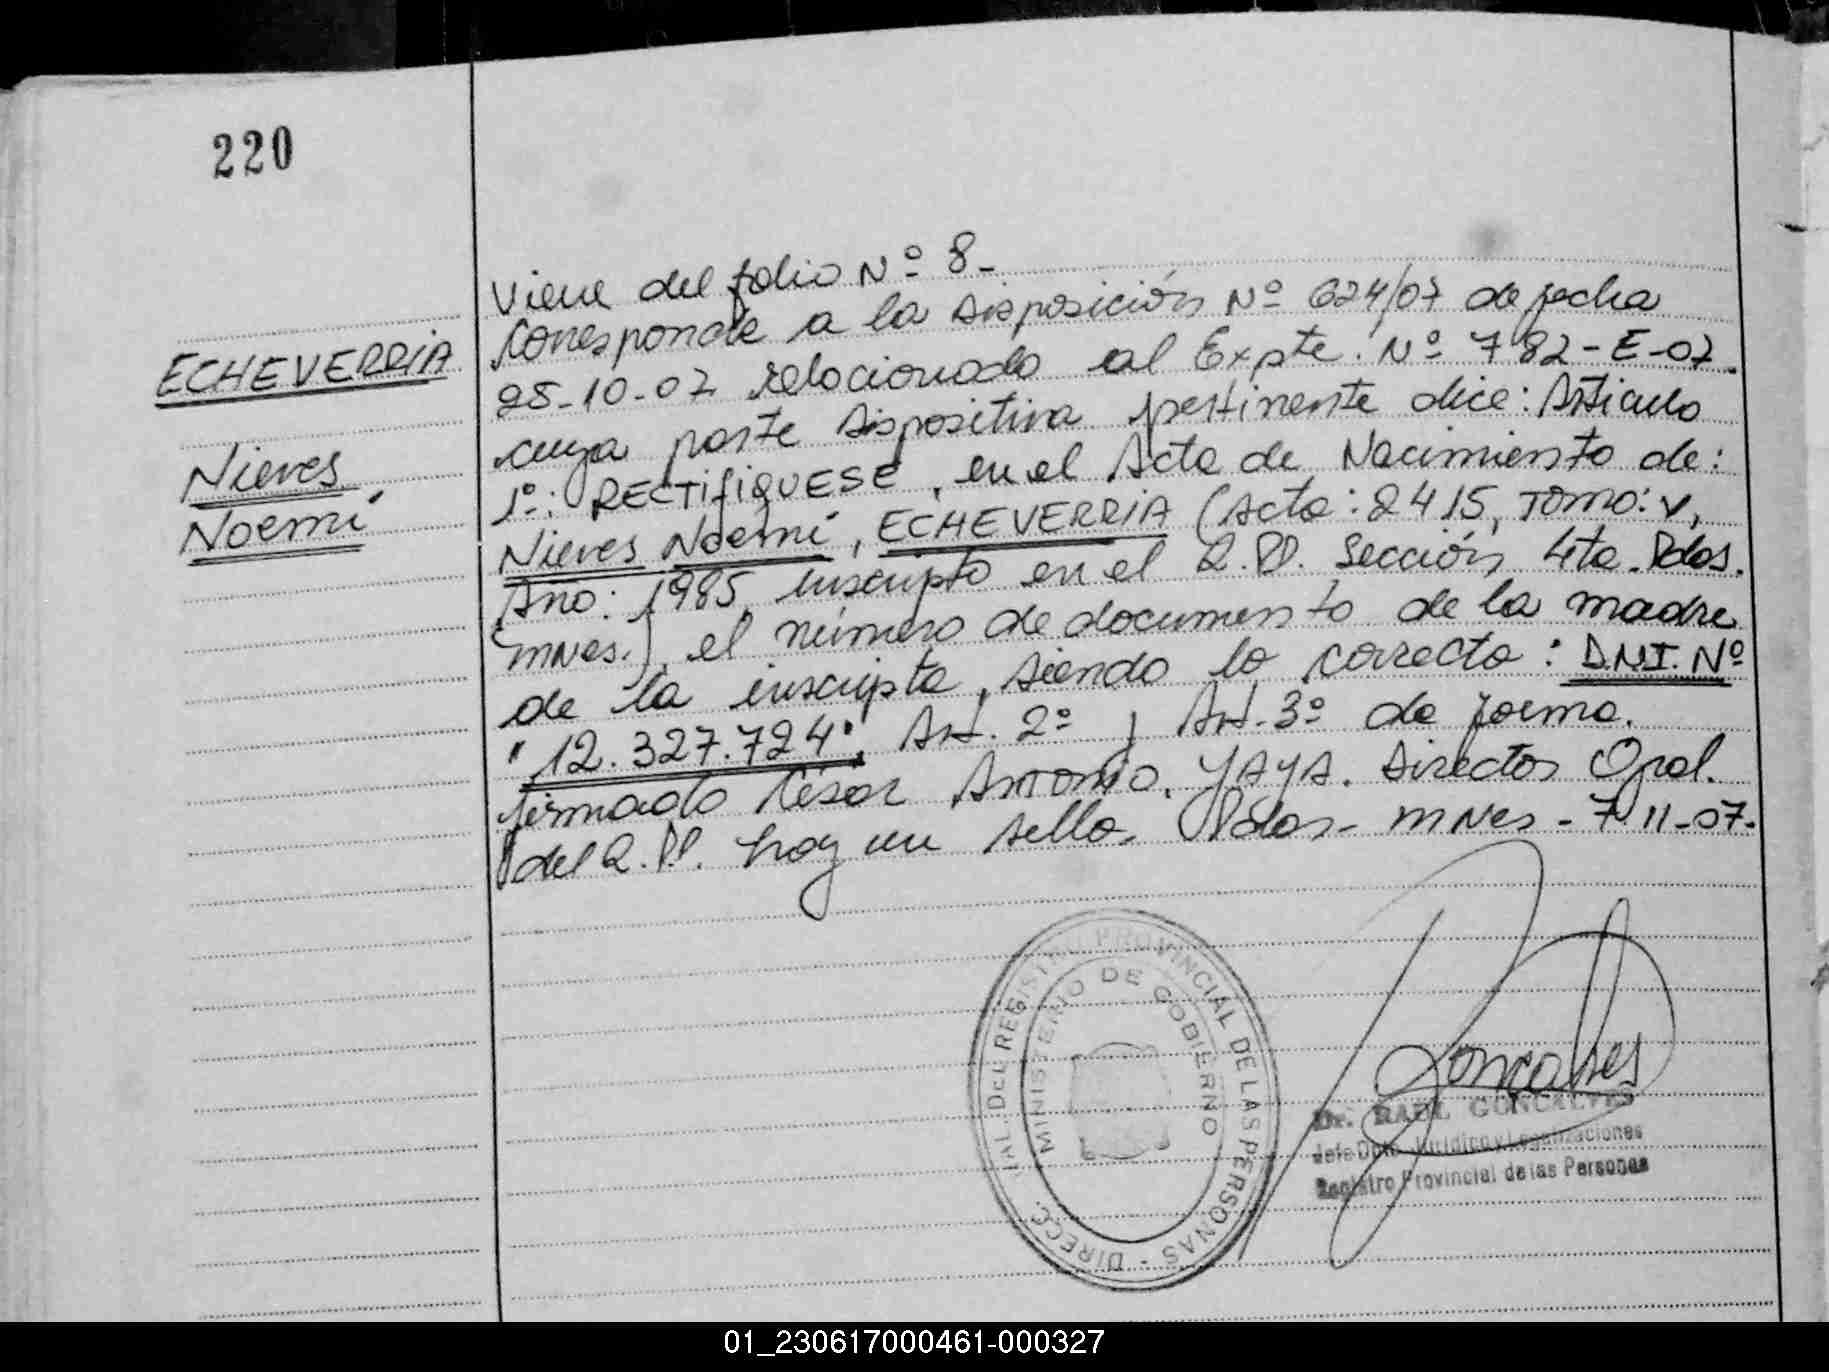 220
ECHEVERRIA
Nieves
Noemí.
Viene del folio Nº 8-
Corresponde a la Disposición Nº 624/07 de fecha
25-10-07 relacionado al Expte. Nº 782-E-07.
cuya parte dispositiva pertinente dice: Artículo
1º: RECTIFIQUESE, en el Acta de Nacimiento de:
Nieves Noemí, ECHEVERRIA (Acta: 2415, Tomo: V,
Año: 1985, inscripto en el R.P. Sección 4ta. Pdas.
mnes.), el número de documento de la madre
de la inscripta, siendo lo correcto: D.N.I. Nº
"12.327.724". Art. 2º y Art. 3º de forma.
firmado César Antonio. YAYA. Director Gral.
del R.P. hay un sello. Pdas- mnes - 7-11-07-
DIRECC. REGISTRO PROVINCIAL DE LAS PERSONAS -
MINISTERIO DE GOBIERNO
Goncalves
Dr. RAUL GONCALVES
Jefe Dpto. Jurídico y Legalizaciones
Registro Provincial de las Personas
01_230617000461-000327